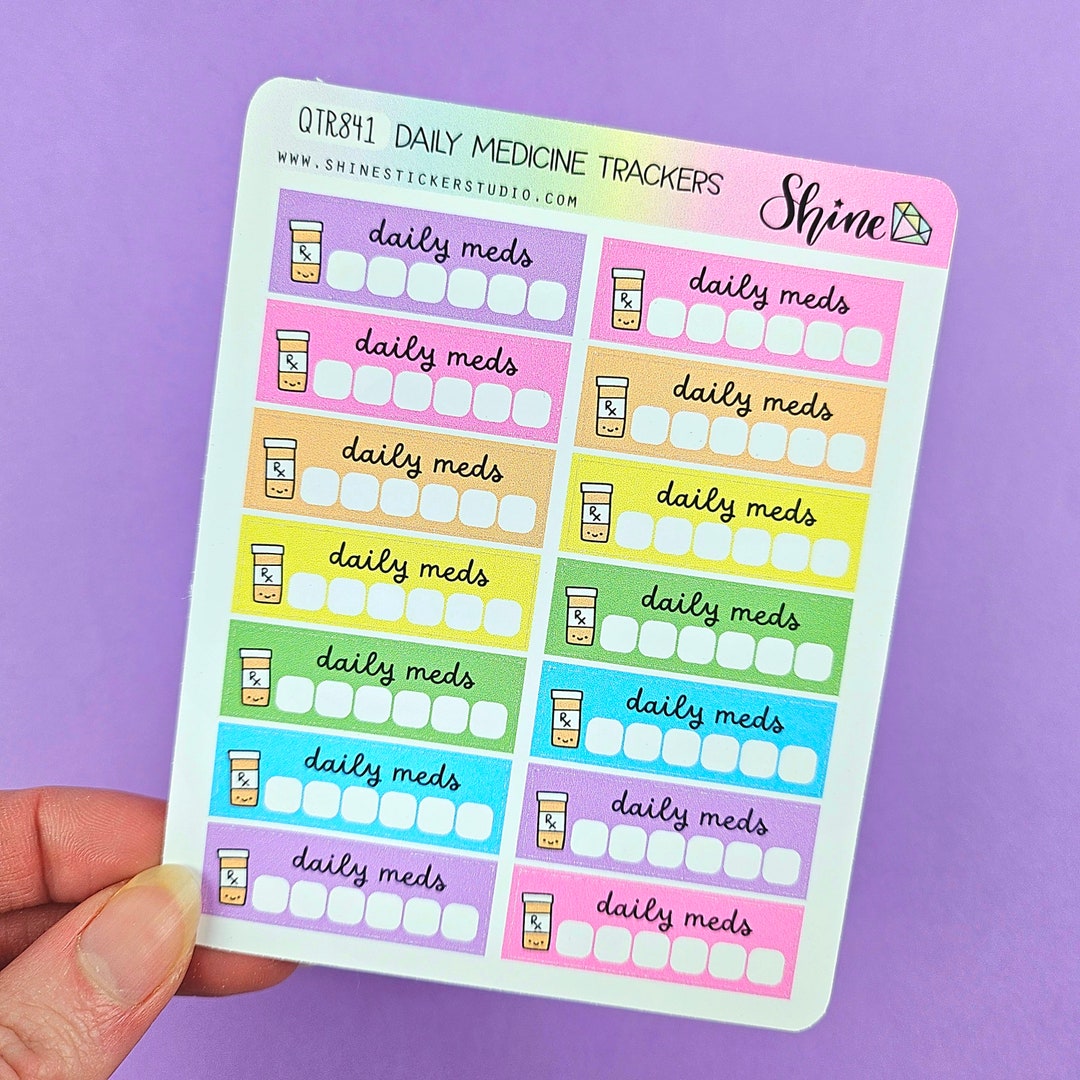 QTR841 DAILY MEDICINE TRACKERS
WWW.SHINESTICKERSTUDIO.COM
Shine
daily meds
Rx
daily meds
Rx
daily meds
Rx
daily meds
Rx
daily meds
Rx
daily meds
Rx
daily meds
Rx
daily meds
Rx
daily meds
Rx
daily meds
Rx
daily meds
Rx
daily meds
Rx
daily meds
Rx
daily meds
Rx